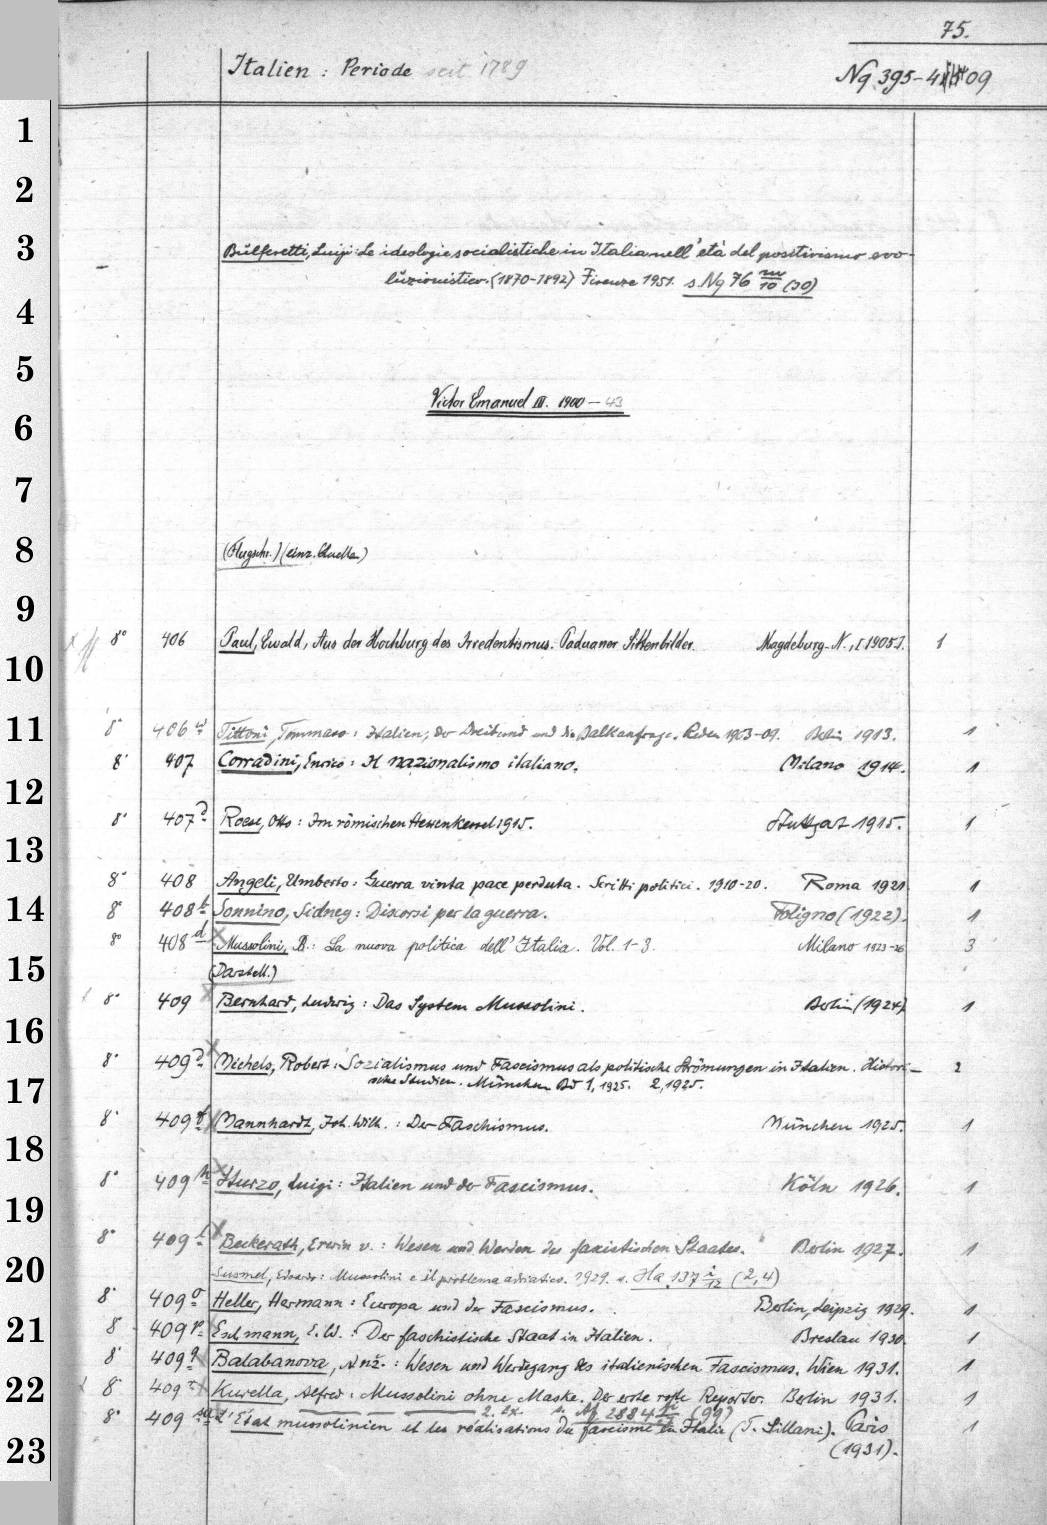 75.
Italien : Periode seit 1789
Nq 395-409
1
2
3
Bulferetti, Luigi: Le ideologie socialistiche in Italia nell'età del positivismo evo-
luzionistico. (1870-1892) Firenze 1951. s. Nq 76 m/10 (30)
4
5
Victor Emanuel III. 1900-43
6
7
8
(Flugschr.) (einz. Quelle)
9
8° 406 Paul, Ewald, Aus der Hochburg des Irredentismus. Paduaner Sittenbilder. Magdeburg-N., [1905]. 1
10
11
8° 406 Tittoni, Tommaso: Italien, der Dreibund und die Balkanfrage. Reden 1903-09. Berlin 1913. 1
8° 407 Corradini, Enrico: Il nazionalismo italiano. Milano 1914. 1
12
8° 407 Roese, Otto: Im römischen Hexenkessel 1915. Stuttgart 1915. 1
13
8° 408 Angeli, Umberto: Guerra vinta pace perduta. Scritti politici. 1910-20. Roma 1921. 1
14
8° 408 Sonnino, Sidney: Discorsi per la guerra. Foligno (1922). 1
8° 408 d Mussolini, B.: La nuova politica dell'Italia. Vol. 1-3. Milano 1923-26 3
15
(Darstell.)
8° 409 Bernhard, Ludwig: Das System Mussolini. Berlin (1924) 1
16
8° 409 Michels, Robert: Sozialismus und Fascismus als politische Strömungen in Italien. Histori- 2
17
sche Studien. München Bd 1, 1925. 2, 1925.
8° 409 f Mannhardt, Joh. Wilh.: Der Faschismus. München 1925. 1
18
8° 409 h Sturzo, Luigi: Italien und der Fascismus. Köln 1926. 1
19
8° 409 Beckerath, Erwin v.: Wesen und Werden des faschistischen Staates. Berlin 1927. 1
20
Susmel, Edoardo: Mussolini e il problema adriatico. 1929. s. Ha 137 i/12 (2,4)
8° 409 o Heller, Hermann: Europa und der Fascismus. Berlin, Leipzig 1929. 1
21
8° 409 p Eschmann, E.W.: Der faschistische Staat in Italien. Breslau 1930. 1
8° 409 q Balabanova, Anž.: Wesen und Werdegang des italienischen Fascismus. Wien 1931. 1
22
8° 409 r Kurella, Alfred: Mussolini ohne Maske. Der erste rote Reporter. Berlin 1931. 1
2. Ex. s. 2884 (99)
8° 409 L'État mussolinien et les réalisations du fascisme en Italie (T. Sillani). Paris 1
23
(1931).